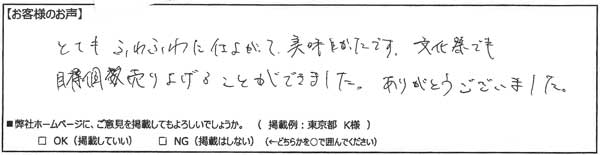 【お客様のお声】
とても ふわふわに仕上がって、美味しかったです。文化祭でも
目標個数売り上げることができました。ありがとうございました。
■弊社ホームページに、ご意見を掲載してもよろしいでしょうか。（ 掲載例：東京都 K様 ）
□ OK（掲載していい） □ NG（掲載はしない）（←どちらかを○で囲んでください）